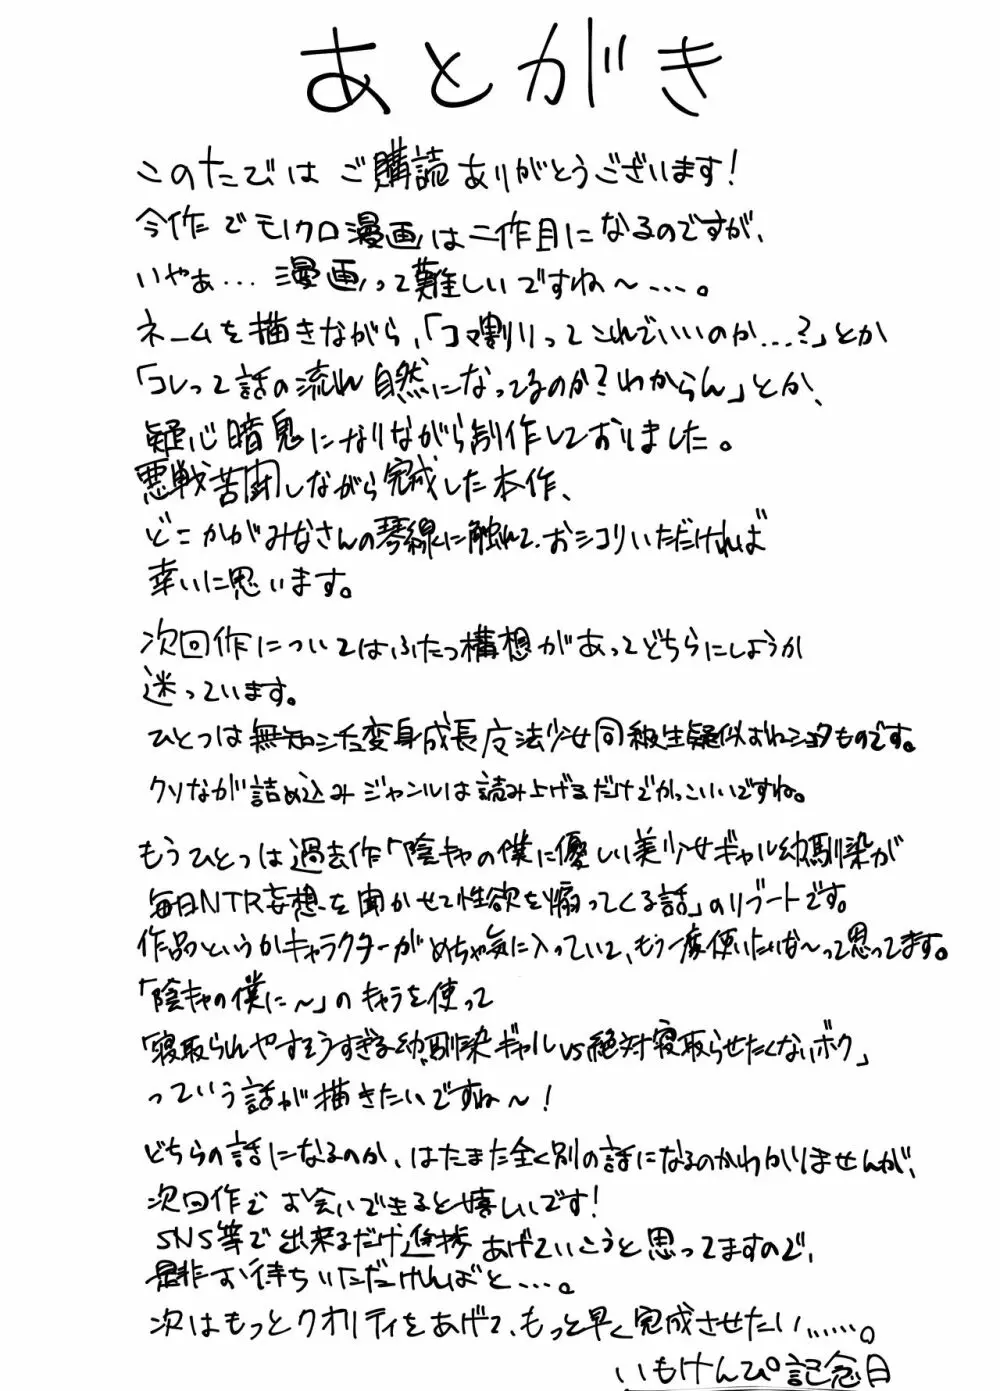 あとがき
このたびはご購読ありがとうございます!
今作でモノクロ漫画は二作目になるのですが、
いやぁ…漫画って難しいですね〜…。
ネームを描きながら、「コマ割りってこれでいいのか…?」とか
「コレって話の流れ自然になってるのか?わからん」とか、
疑心暗鬼になりながら制作しておりました。
悪戦苦闘しながら完成した本作、
どこかがみなさんの琴線に触れて、おシコりいただければ
幸いに思います。
次回作についてはふたつ構想があってどちらにしようか
迷っています。
ひとつは無知シチュ変身成長魔法少女同級生疑似おねショタものです。
クソなが詰め込みジャンルは読み上げるだけでかっこいいですね。
もうひとつは過去作「陰キャの僕に優しい美少女ギャル幼馴染が
毎日NTR妄想を聞かせて性欲を煽ってくる話」のリブートです。
作品というかキャラクターがめちゃ気に入っていて、もう一度使いたいな〜って思ってます。
「陰キャの僕に〜」のキャラを使って
「寝取られやすそうすぎる幼馴染ギャルvs絶対寝取らせたくないボク」
っていう話が描きたいですね〜!
どちらの話になるのか、はたまた全く別の話になるのかわかりませんが、
次回作でお会いできると嬉しいです!
SNS等で出来るだけ進捗あげていこうと思ってますので、
是非お待ちいただければと…。
次はもっとクオリティをあげて、もっと早く完成させたい……。
いもけんぴ記念日